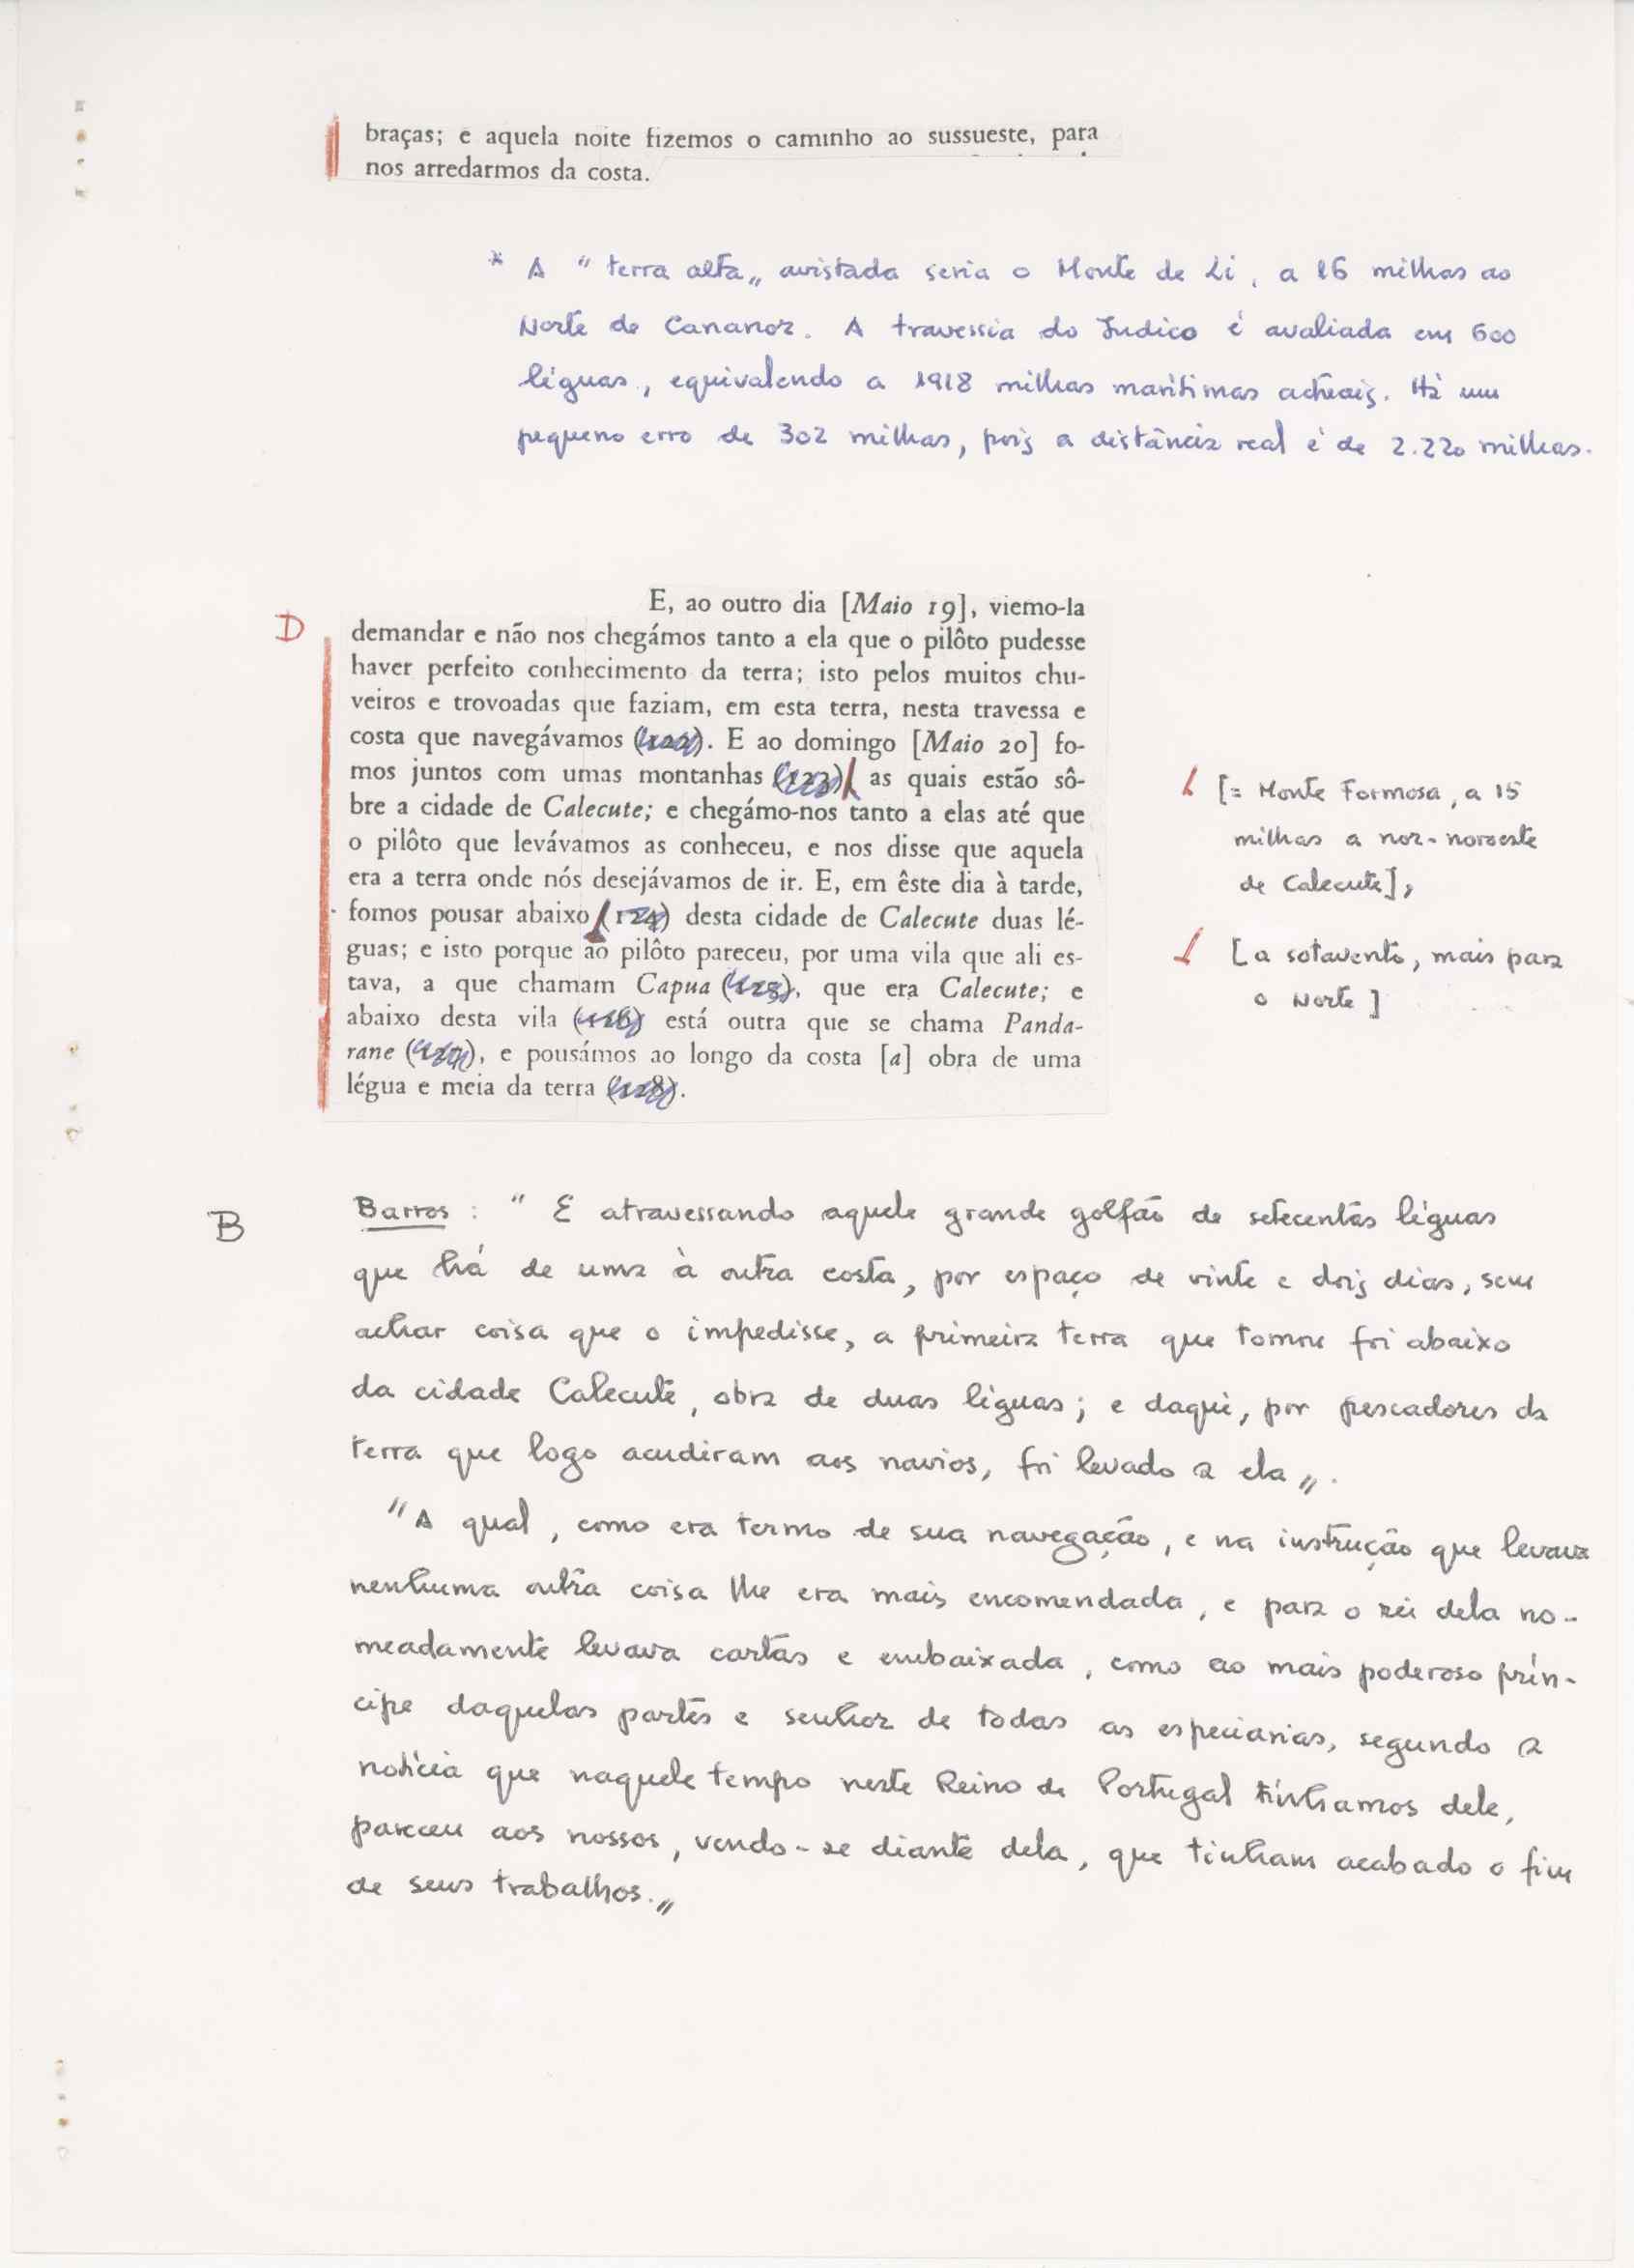 braças; e aquela noite fizemos o caminho ao sussueste, para
nos arredarmos da costa.
* A "terra alta„ avistada seria o Monte de Li, a 16 milhas ao
Norte de Cananor. A travessia do Índico é avaliada em 600
léguas, equivalendo a 1918 milhas marítimas actuais. Há um
pequeno erro de 302 milhas, pois a distância real é de 2.220 milhas.
E, ao outro dia [Maio 19], viemo-la
D
demandar e não nos chegámos tanto a ela que o pilôto pudesse
haver perfeito conhecimento da terra; isto pelos muitos chu-
veiros e trovoadas que faziam, em esta terra, nesta travessa e
costa que navegávamos (122). E ao domingo [Maio 20] fo-
mos juntos com umas montanhas (123) as quais estão sô-
bre a cidade de Calecute; e chegámo-nos tanto a elas até que
o pilôto que levávamos as conheceu, e nos disse que aquela
era a terra onde nós desejávamos de ir. E, em êste dia à tarde,
fomos pousar abaixo (124) desta cidade de Calecute duas lé-
guas; e isto porque ao pilôto pareceu, por uma vila que ali es-
tava, a que chamam Capua (125), que era Calecute; e
abaixo desta vila (126) está outra que se chama Panda-
rane (127), e pousámos ao longo da costa [a] obra de uma
légua e meia da terra (128).
[= Monte Formosa, a 15
milhas a nor-noroeste
de Calecute],
[a sotavento, mais para
o Norte]
B
Barros : "E atravessando aquele grande golfão de setecentas léguas
que há de uma à outra costa, por espaço de vinte e dois dias, sem
achar coisa que o impedisse, a primeira terra que tomou foi abaixo
da cidade Calecute, obra de duas léguas; e daqui, por pescadores da
terra que logo acudiram aos navios, foi levado a ela„.
"A qual, como era termo de sua navegação, e na instrução que levava
nenhuma outra coisa lhe era mais encomendada, e para o rei dela no-
meadamente levava cartas e embaixada, como ao mais poderoso prín-
cipe daquelas partes e senhor de todas as especiarias, segundo a
notícia que naquele tempo neste Reino de Portugal tínhamos dele,
pareceu aos nossos, vendo-se diante dela, que tinham acabado o fim
de seus trabalhos.„